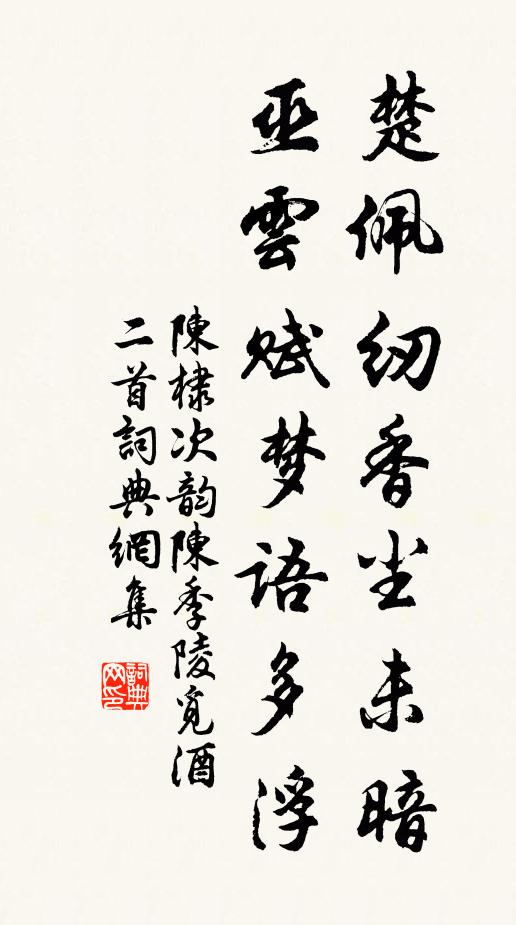 楚佩纫香尘未暗
巫雲赋梦語多浮
陳棣次韵陳季陵覓酒
二首詞典網集
詞典
网印